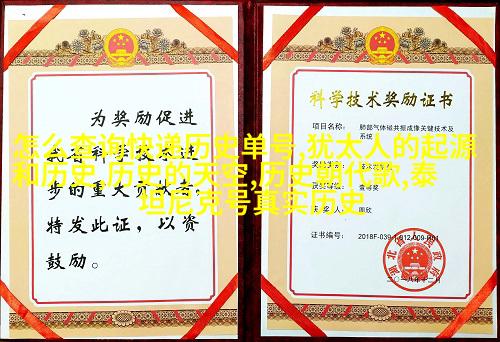 为奖励促进
我省科学技术进
步的重大贡献者。
特发此证，以资
鼓励。
科学技术奖励证书
项目名称：肺部气体磁共振成像关键技术及
系统
奖励类别：
获奖等级：壹等奖
获奖人：周欣
证书编号：2018F-039-1-012-009-R01
二〇一八年十二月
怎么查询快递历史单号,犹太人的起源
和历史,历史的天空,历史朝代歌,泰
坦尼克号真实历史